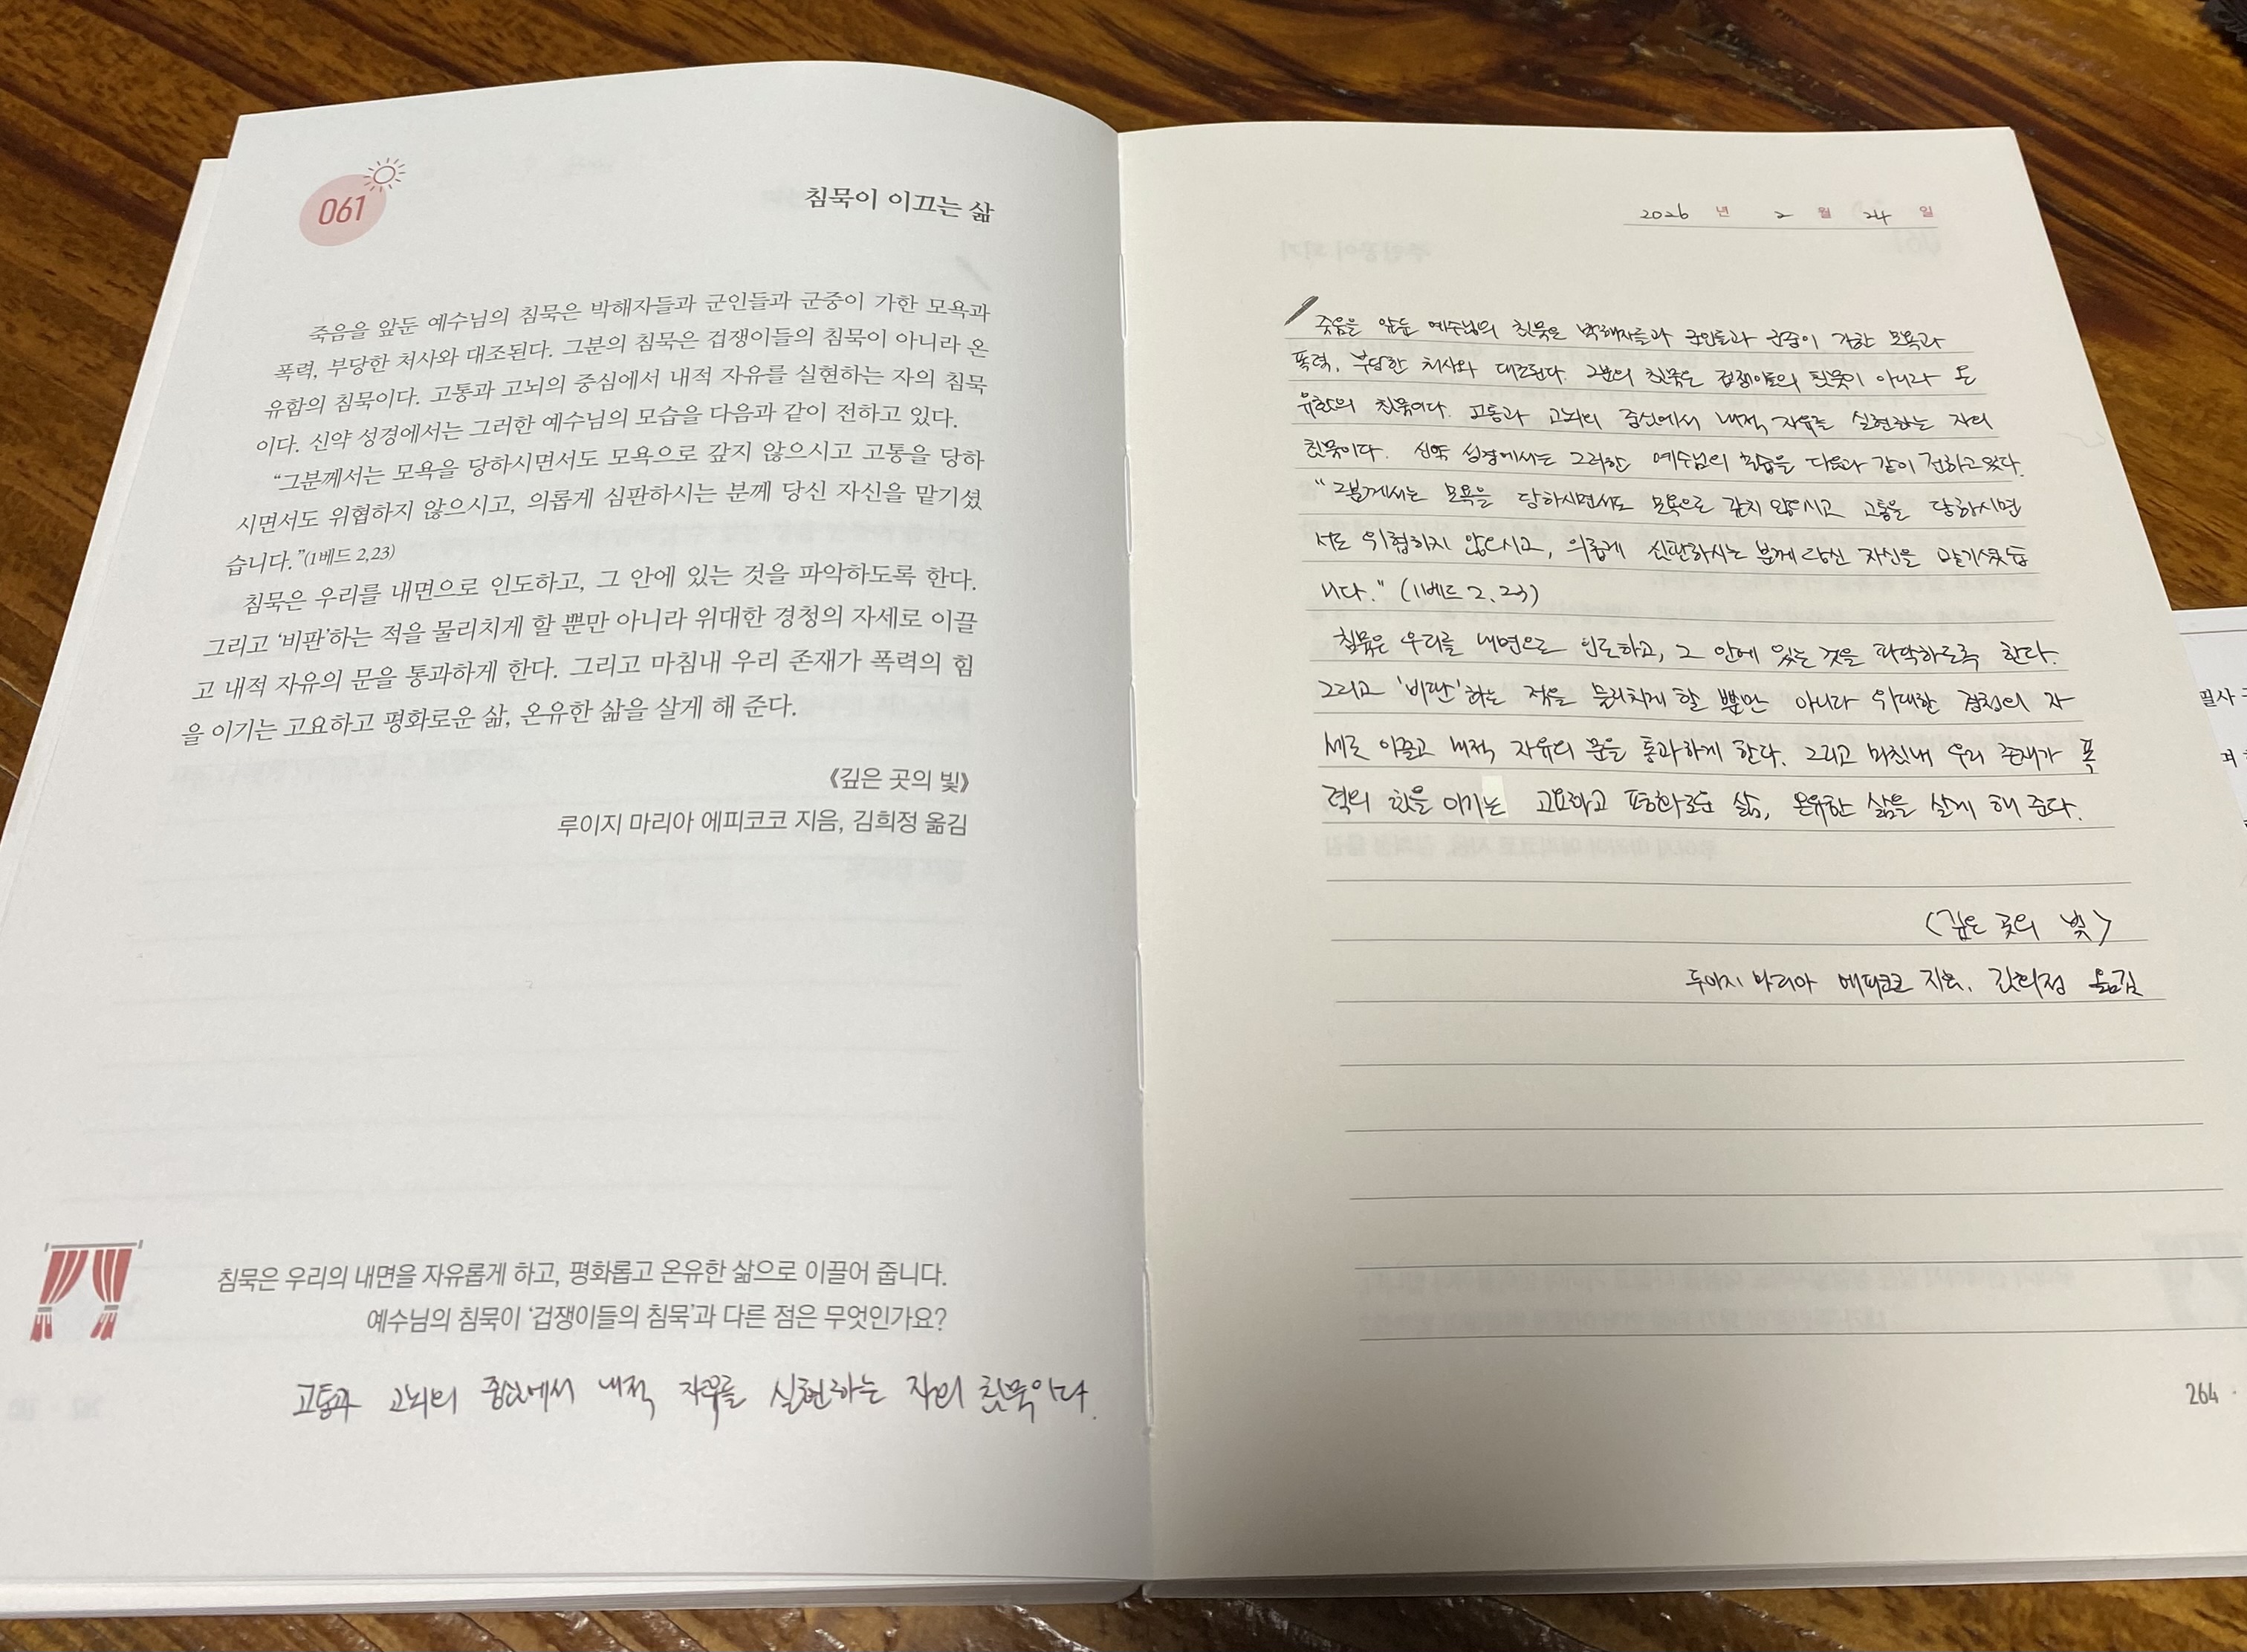 061
침묵이 이끄는 삶
죽음을 앞둔 예수님의 침묵은 박해자들과 군인들과 군중이 가한 모욕과
폭력, 부당한 처사와 대조된다. 그분의 침묵은 겁쟁이들의 침묵이 아니라 온
유함의 침묵이다. 고통과 고뇌의 중심에서 내적 자유를 실현하는 자의 침묵
이다. 신약 성경에서는 그러한 예수님의 모습을 다음과 같이 전하고 있다.
“그분께서는 모욕을 당하시면서도 모욕으로 갚지 않으시고 고통을 당하
시면서도 위협하지 않으시고, 의롭게 심판하시는 분께 당신 자신을 맡기셨
습니다.”(1베드 2,23)
침묵은 우리를 내면으로 인도하고, 그 안에 있는 것을 파악하도록 한다.
그리고 ‘비판’하는 적을 물리치게 할 뿐만 아니라 위대한 경청의 자세로 이끌
고 내적 자유의 문을 통과하게 한다. 그리고 마침내 우리 존재가 폭력의 힘
을 이기는 고요하고 평화로운 삶, 온유한 삶을 살게 해 준다.
《깊은 곳의 빛》
루이지 마리아 에피코코 지음, 김희정 옮김
침묵은 우리의 내면을 자유롭게 하고, 평화롭고 온유한 삶으로 이끌어 줍니다.
예수님의 침묵이 ‘겁쟁이들의 침묵’과 다른 점은 무엇인가요?
고통과 고뇌의 중심에서 내적 자유를 실현하는 자의 침묵이다.
2026 년 2 월 24 일
죽음을 앞둔 예수님의 침묵은 박해자들과 군인들과 군중이 가한 모욕과
폭력, 부당한 처사와 대조된다. 그분의 침묵은 겁쟁이들의 침묵이 아니라 온
유함의 침묵이다. 고통과 고뇌의 중심에서 내적 자유를 실현하는 자의
침묵이다. 신약 성경에서는 그러한 예수님의 모습을 다음과 같이 전하고 있다.
“그분께서는 모욕을 당하시면서도 모욕으로 갚지 않으시고 고통을 당하시면
서도 위협하지 않으시고, 의롭게 심판하시는 분께 당신 자신을 맡기셨습
니다.” (1베드 2.23)
침묵은 우리를 내면으로 인도하고, 그 안에 있는 것을 파악하도록 한다.
그리고 '비판'하는 적을 물리치게 할 뿐만 아니라 위대한 경청의 자
세로 이끌고 내적 자유의 문을 통과하게 한다. 그리고 마침내 우리 존재가 폭
력의 힘을 이기는 고요하고 평화로운 삶, 온유한 삶을 살게 해 준다.
<깊은 곳의 빛>
루이지 마리아 에피코코 지음, 김희정 옮김
264
필사